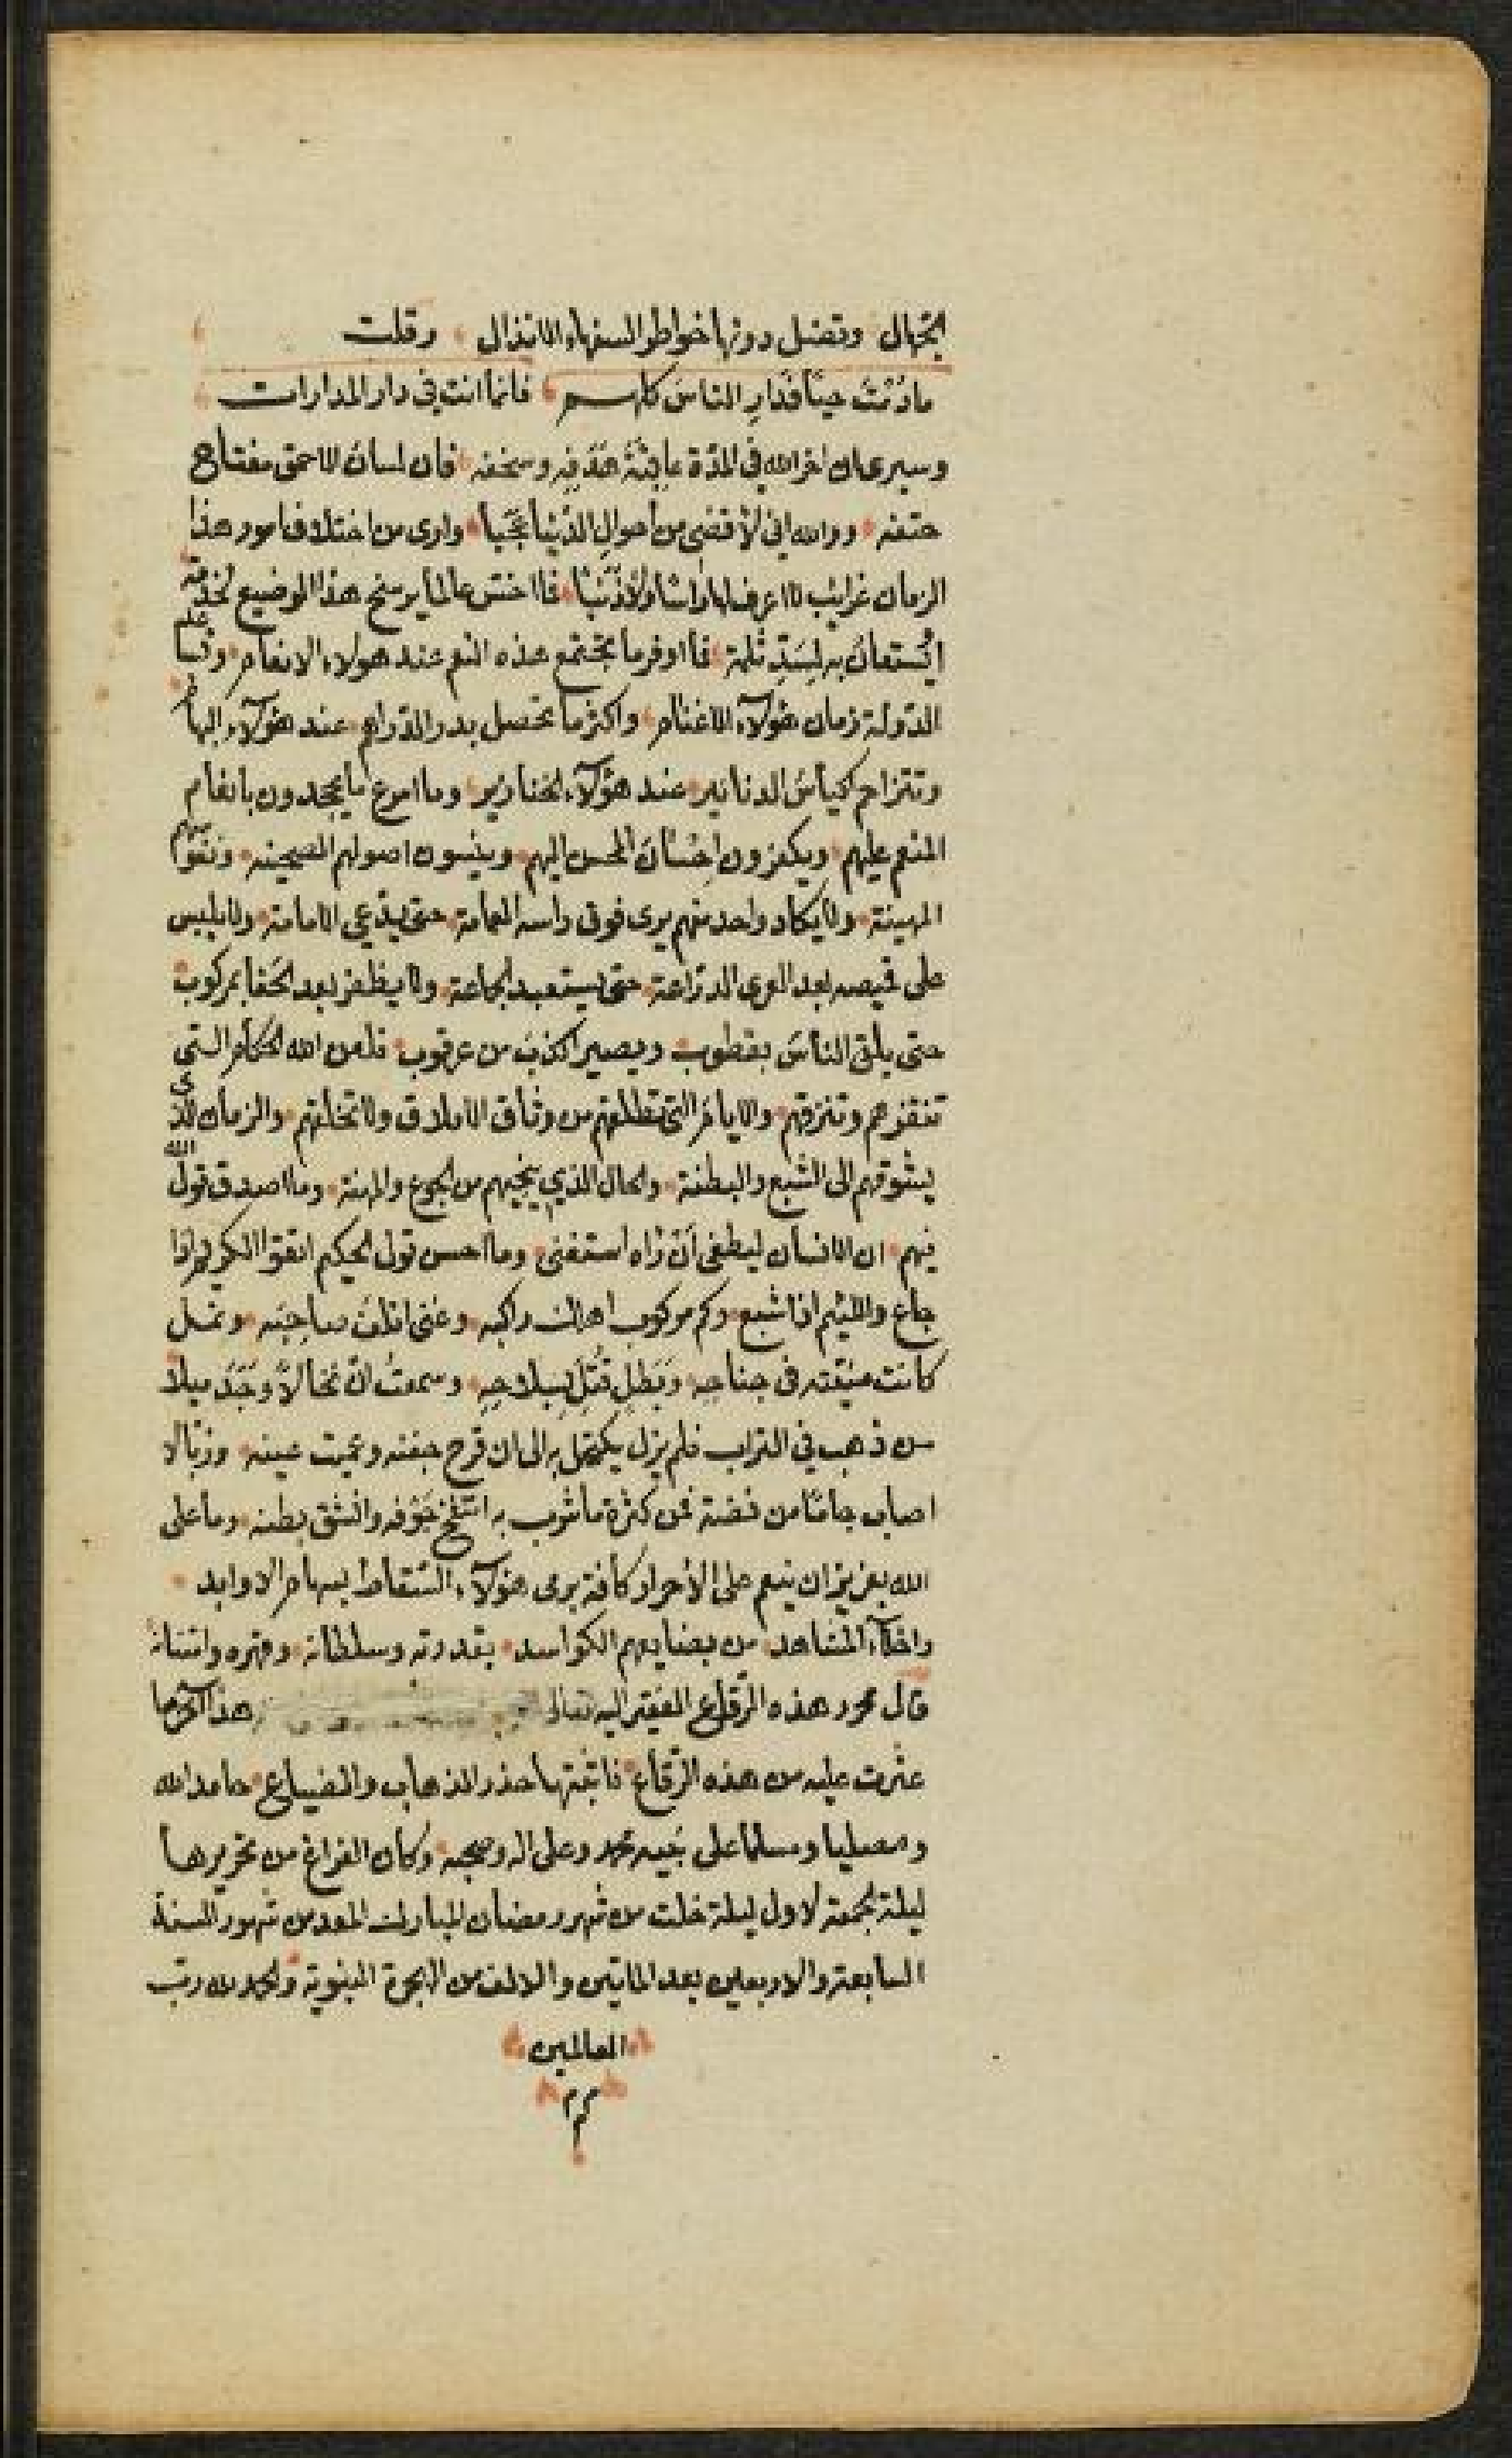 الجهال وتضل دونها خواطر السفهاء الانذال وقلت
ما دُمْتَ حيّاً فَدارِ الناسَ كلهم فانما انت في دار المدارات
وسيرى ان اخر الله في المدة عاقبة هَذَفِه وسخفه فان لسان الاحمق مفتاح
حتفه ووالله اني لأقضى من أحوال الدُّنيا عَجَباً وارى من اختلاف امور هذا
الزمان غرائب لا اعرف لها راسا ولا ذَنَباً فما اخس عالما يرسخ هذا الوضيع لخدمته
ايُستعان به لِسَدِّ ثُلمة فما اوفر ما تجتمع هذه النعم عند هولاء الانعام وقسا علم
الدولة زمان هؤلآء الاغنام واكثر ما تحصل بدر الدراهم عند هؤلآء البهائم
وتتزاحم اكياسُ الدنانير عند هؤلآء الخنازير وما اسرع ما يجحدون بانعام
المنعم عليهم ويكفرون احْسانَ المحسن اليهم وينسون اصولهم المهينة ونفوسهم
المهينة ولا يكاد واحد منهم يرى فوق راسه العمامة حتى يدّعي الامامة ولا يلبس
على قميصه بعد العرى الدرّاعة حتى يستعبد الجماعة ولا يظفر بعد الحَفا بمركوب
حتى يلقى الناسَ بقطوب ويصير اكذبَ من عرقوب فلعن الله الحكام التي
تنقزهم وتنزقهم والايام التي تطلقهم من وثاق الاملاق ولا تخلقهم والزمان الذي
يشوقهم الى الشبع والبطنة والحال الذي ينجيهم من الجوع والمهنة وما اصدق قول الله
فيهم ان الانسان ليطغى أنْ رآه استغنى وما احسن قول الحكيم اتقوا الكريم اذا
جاع واللئيم اذا شبع وكم مركوب اهلك راكبه وغنى اتلفَ صاحِبَه ونمل
كانت منيّته في جناحِه وبَطَلٍ قُتِلَ بِسِلاحِهِ وسمعتُ انّ نخالاً وَجَدَ ميلا
من ذهب في التراب فلم يزل يكتحل به الى ان قرح جفنه وعميت عينه وزبّالا
اصاب جامًا من فضة فمن كثرة ما شرب به انتفخ جَوْفه وانشق بطنه وما على
الله بعزيز ان ينعم على الأحرار كافة برمى هؤلآء السُّقاط بسهام الاوابد
واخلآء المشاهد من بضايعهم الكواسد بقدرته وسلطانه وقهره وامتنانه
قال محرر هذه الرّقاع الفقير اليه تعالى هذا آخر ما
عثرت عليه من هذه الرِّقاع فاثبتها حذر الذهاب والضياع حامدا لله
ومصليا ومسلما على نبيه محمد وعلى اله وصحبه وكان الفراغ من تحريرها
ليلة الجمعة لاول ليلة خلت من شهر رمضان المبارك المعد من شهور السنة
السابعة والاربعين بعد المايتين والالف من الهجرة النبوية والحمد لله رب
العالمين
م م م